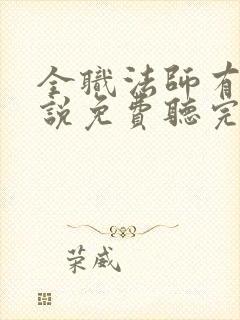 全職法師有
說免費聽完
荣威